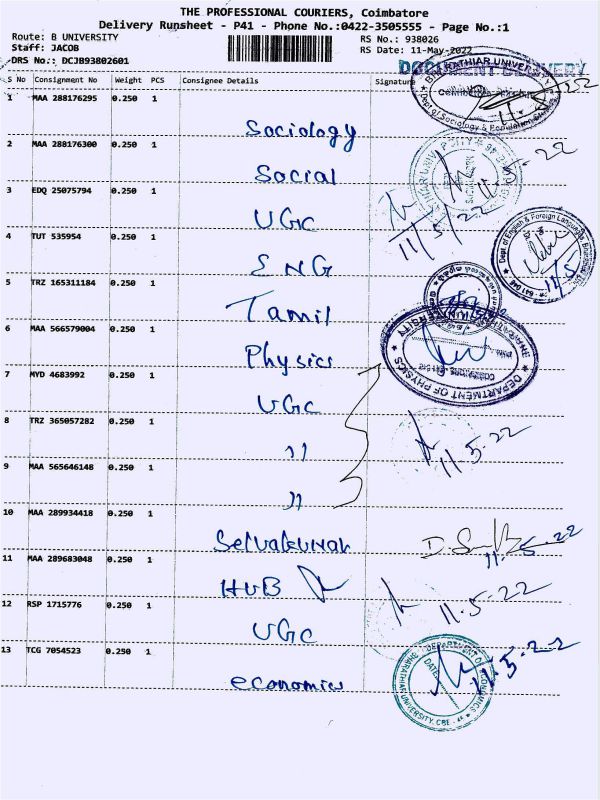 THE PROFESSIONAL COURIERS, Coimbatore
Delivery Runsheet - P41 - Phone No.:0422-3505555 - Page No.:1
Route: B UNIVERSITY
RS No.: 938026
Staff: JACOB
RS Date: 11-May-2022
DRS No.: DCJB93802601
DOCUMENT DELIVERY
S No Consignment No Weight PCS Consignee Details Signature
1 MAA 288176295 0.250 1 Sociology
2 MAA 288176300 0.250 1 Social 11-5-22
3 EDQ 25075794 0.250 1 UGC 11/5/22
4 TUT 535954 0.250 1 ENG 11/5
5 TRZ 165311184 0.250 1 Tamil
6 MAA 566579004 0.250 1 Physics
DEPARTMENT OF PHYSICS
7 MYD 4683992 0.250 1 UGC
8 TRZ 365057282 0.250 1 " 11-5-22
9 MAA 565646148 0.250 1 "
10 MAA 289934418 0.250 1 Selvakumar 11-5-22
11 MAA 289683048 0.250 1 HUB 11-5-22
12 RSP 1715776 0.250 1 UGC
13 TCG 7054523 0.250 1 economics 11-5-22
BHARATHIAR UNIVERSITY, CBE - 46